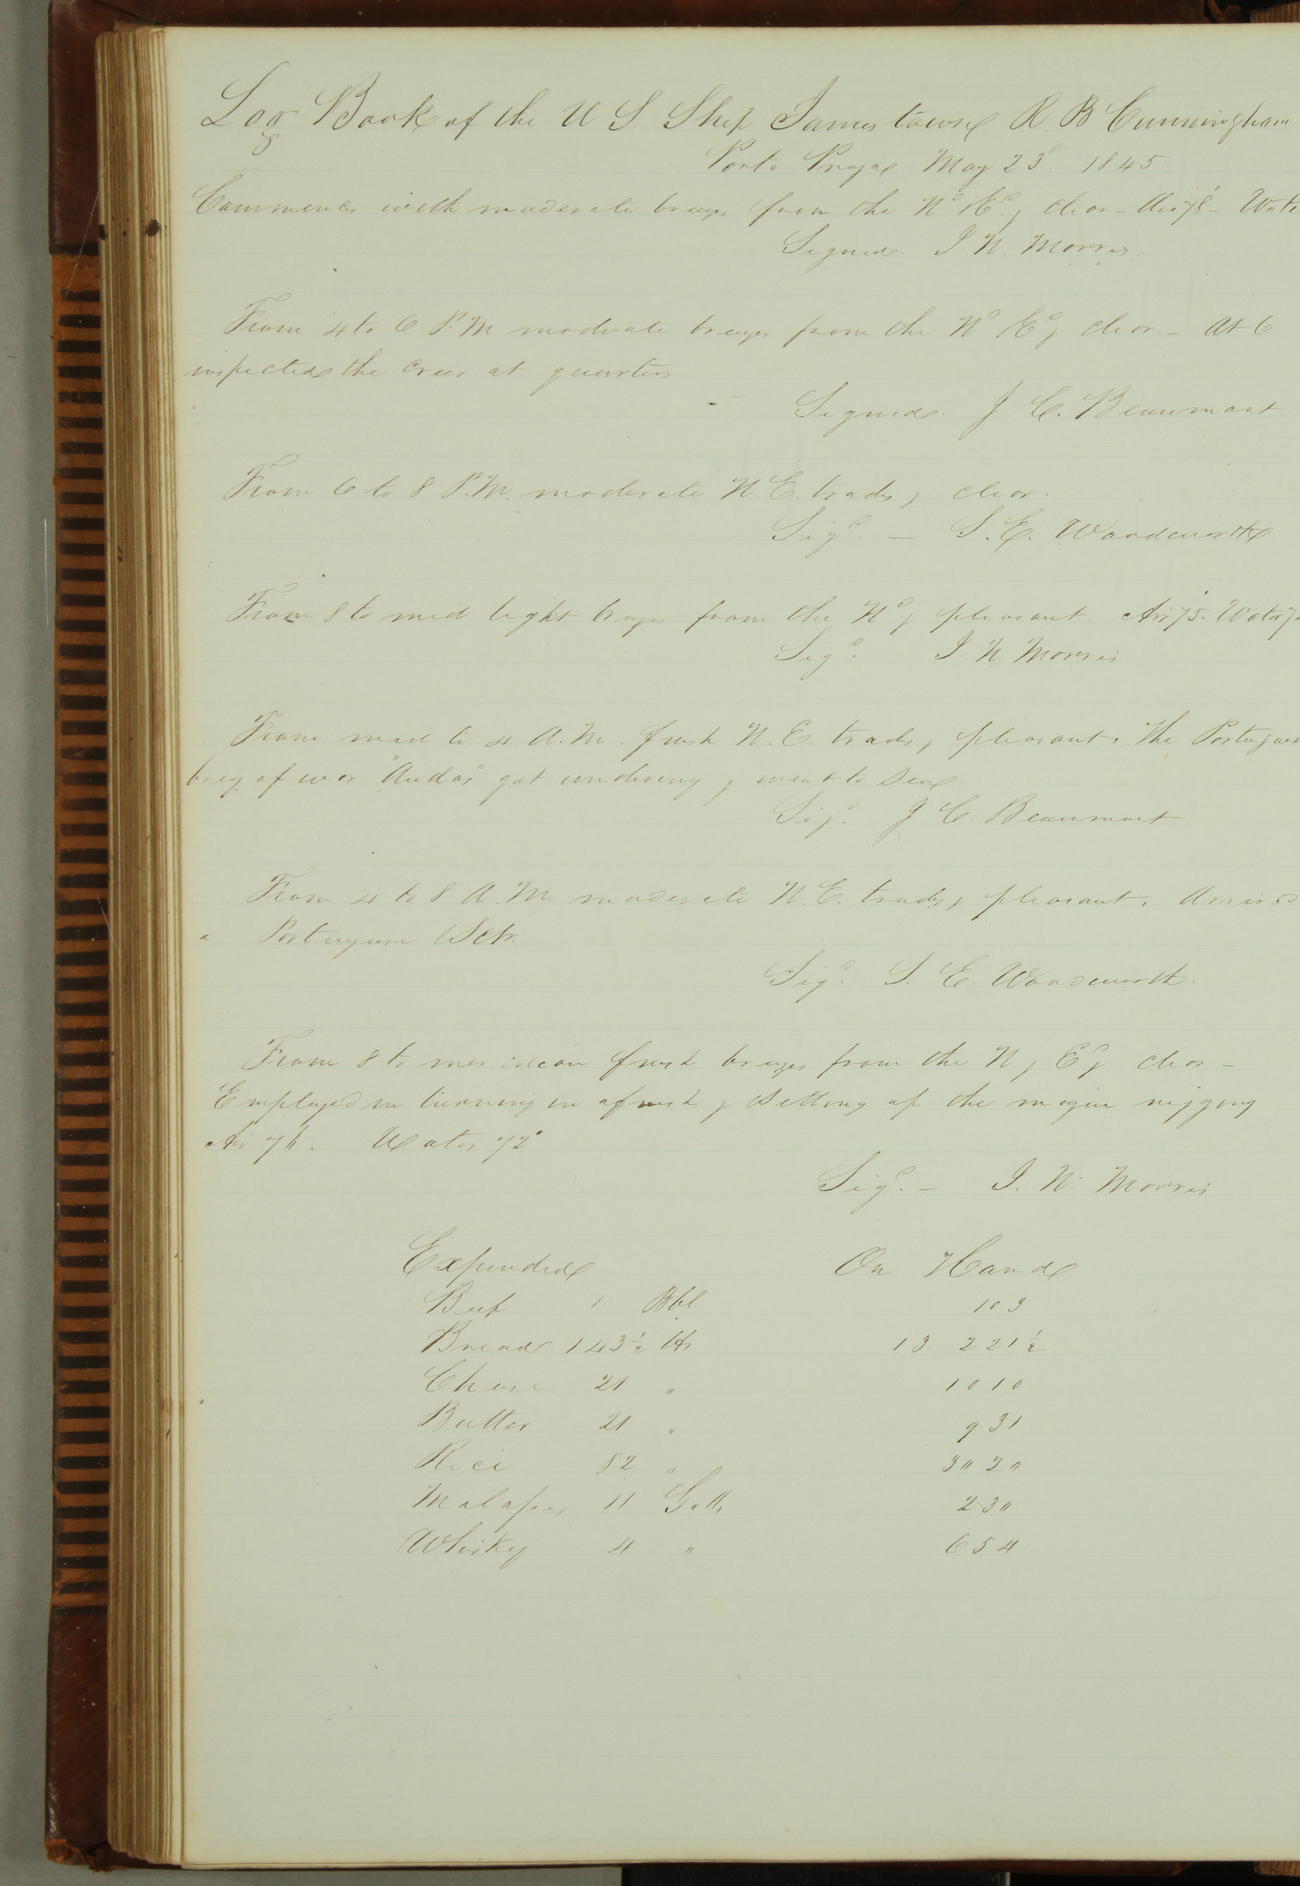 Log Book of the U S. Ship Jamestown R B Cunningham
Porto Praya May 23d 1845.
Commences with moderate breezes from the Nd & Ed, clear - Air 78° - Wate
Signed. I. N. Morris.
From 4 to 6 P.M moderate breezes from the Nd & Ed, clear. - At 6
inspected the crew at quarters
Signed. J C. Beaumont
From 6 to 8 P.M. moderate N. E. trades, clear.
Sigd. - S. E. Woodworth
From 8 to mid light breezes from the Nd, pleasant. Air 75. Water 7
Sigd. I. N Morris
From mid to 4 A. M. fresh N. E trades, pleasant. The Portuguese
brig of war got underway & went to Sea
Sigd. J C. Beaumont
From 4 to 8 A. M. moderate N. E. trades, pleasant. Arrived
a Portuguese Schr.
Sigd. S. E. Woodworth.
From 8 to meridian fresh breezes from the N, Ed, clear -
Employed in turning in afresh & setting up the rigging
Air 76. Water 72°
Sigd. - I. N. Morris
Expended On Hand
Beef 1 Bbl 103
Bread 143½ lbs 13.221½
Cheese 21 " 1010
Butter 21 " 931
Rice 82 " 3020
Molasses 11 Galls 230
Whisky 4 " 654